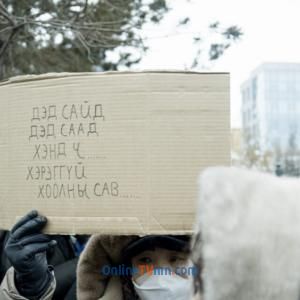 ДЭД САЙД
ДЭД СААД
ХЭНД Ч......
ХЭРЭГГҮЙ
ХООЛНЫ САВ.....
OnlineTVmn.com